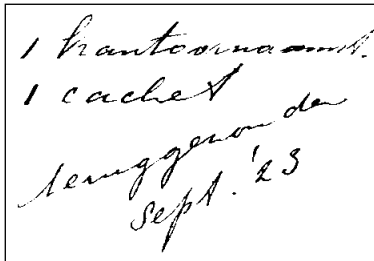 1 kantoornaamst.
1 cachet
teruggezonden
Sept. '23